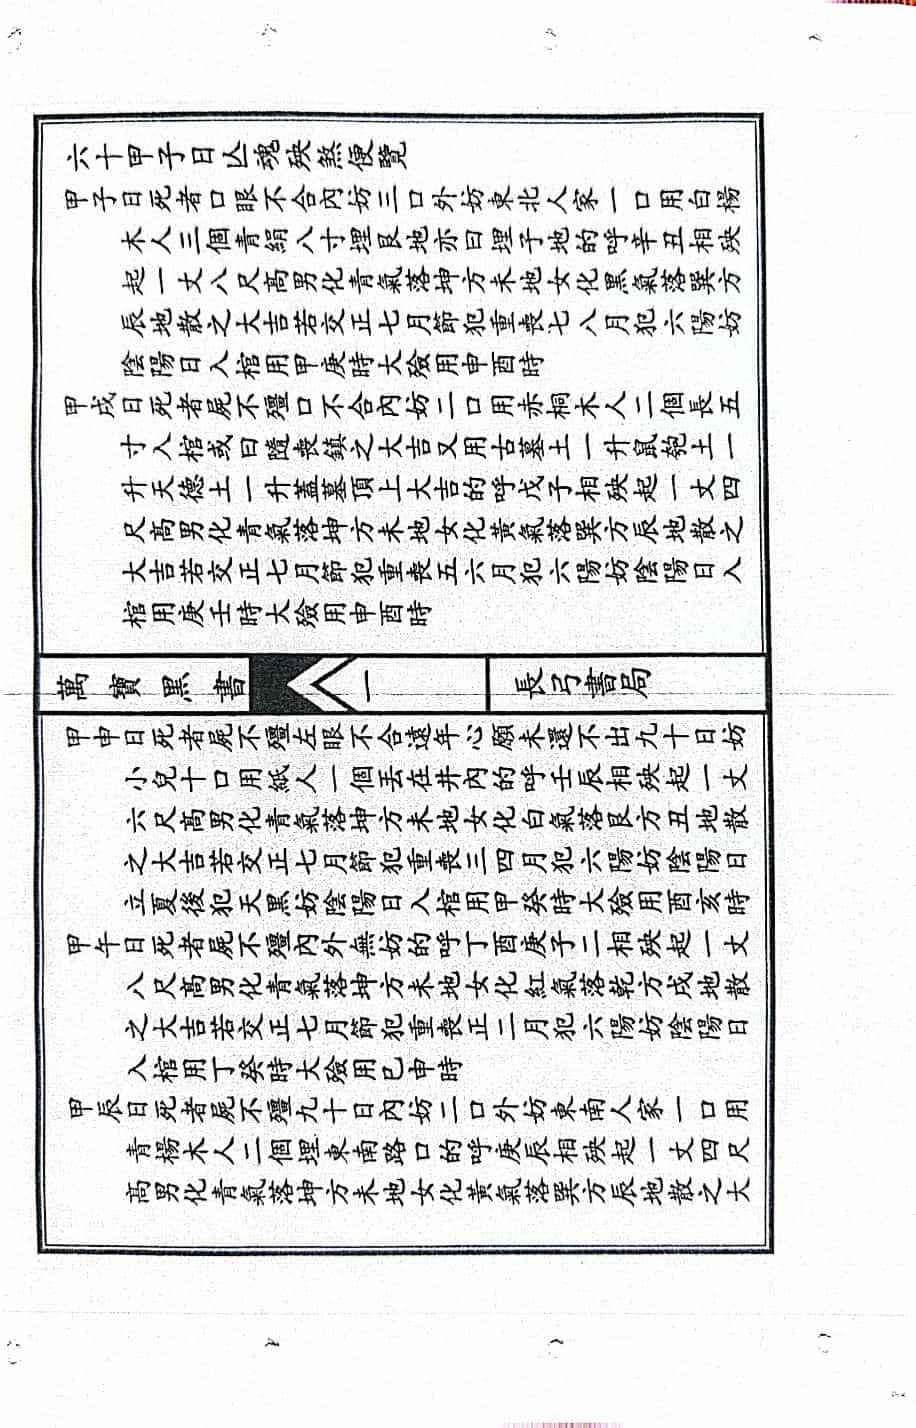 六十甲子日亾魂殃煞便覽
甲子日死者口眼不合內妨三口外妨東北人家一口用白楊
木人三個青絹八寸埋艮地亦曰埋子地的呼辛丑相殃
起一丈八尺高男化青氣落坤方未地女化黑氣落巽方
辰地散之大吉若交正七月節犯重喪七八月犯六陽妨
陰陽日入棺用甲庚時大殮用申酉時
甲戌日死者屍不殭口不合內妨二口用赤桐木人二個長五
寸入棺或曰隨喪鎮之大吉又用古墓土一升鼠匏土一
升天德土一升蓋墓頂上大吉的呼戊子相殃起一丈四
尺高男化青氣落坤方未地女化黃氣落巽方辰地散之
大吉若交正七月節犯重喪五六月犯六陽妨陰陽日入
棺用庚壬時大殮用申酉時
萬寶黑書 一 長弓書局
甲申日死者屍不殭左眼不合遠年心願未還不出九十日妨
小兒十口用紙人一個丟在井內的呼壬辰相殃起一丈
六尺高男化青氣落坤方未地女化白氣落艮方丑地散
之大吉若交正七月節犯重喪三四月犯六陽妨陰陽日
立夏後犯天黑妨陰陽日入棺用甲癸時大殮用酉亥時
甲午日死者屍不殭內外無妨的呼丁酉庚子二相殃起一丈
八尺高男化青氣落坤方未地女化紅氣落乾方戌地散
之大吉若交正七月節犯重喪正二月犯六陽妨陰陽日
入棺用丁癸時大殮用巳申時
甲辰日死者屍不殭九十日內妨二口外妨東南人家一口用
青楊木人二個埋東南路口的呼庚辰相殃起一丈四尺
高男化青氣落坤方未地女化黃氣落巽方辰地散之大